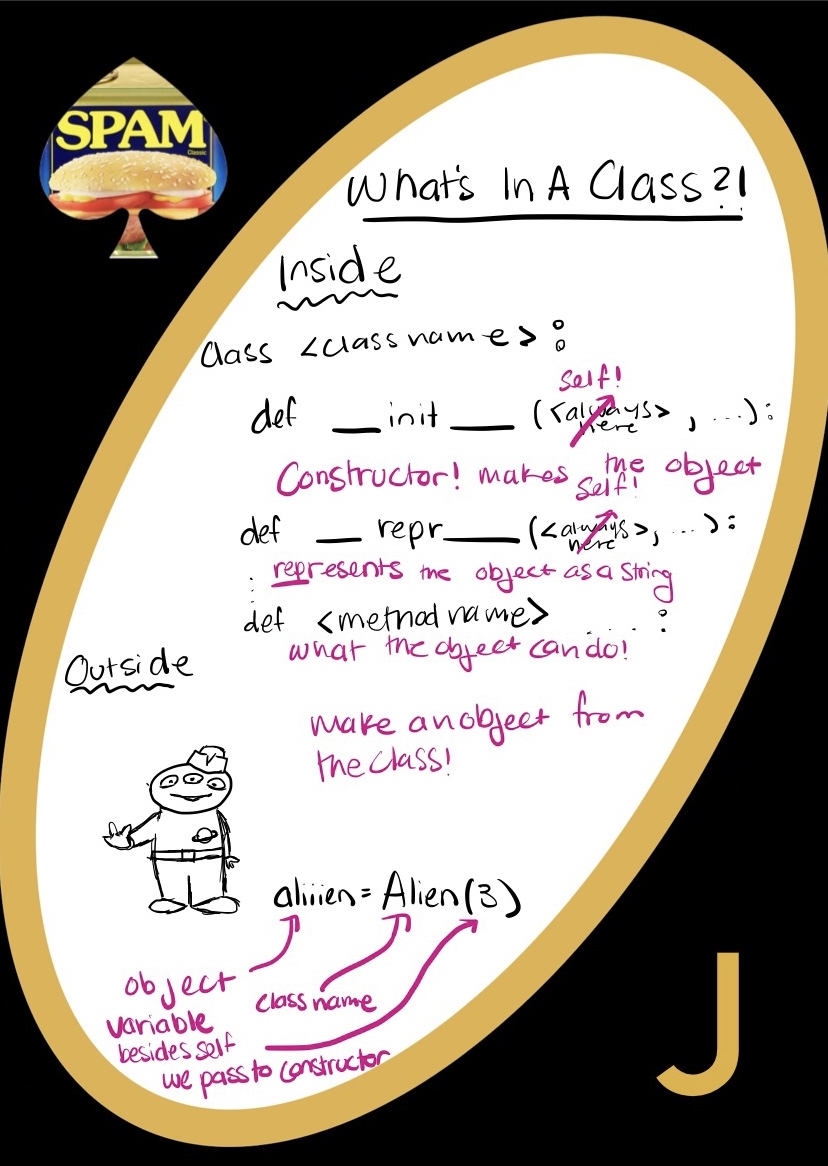 SPAM
Classic
What's In A Class?!
Inside
Class <class name>:
Self!
def __init__ (<always here>, ...):
Constructor! makes the object
Self!
def __repr__ (<always here>, ...):
represents the object as a String
def <method name> ....:
what the object can do!
Outside
Make an object from
the class!
aliiien = Alien(3)
object
class name
variable
besides self
we pass to constructor
J